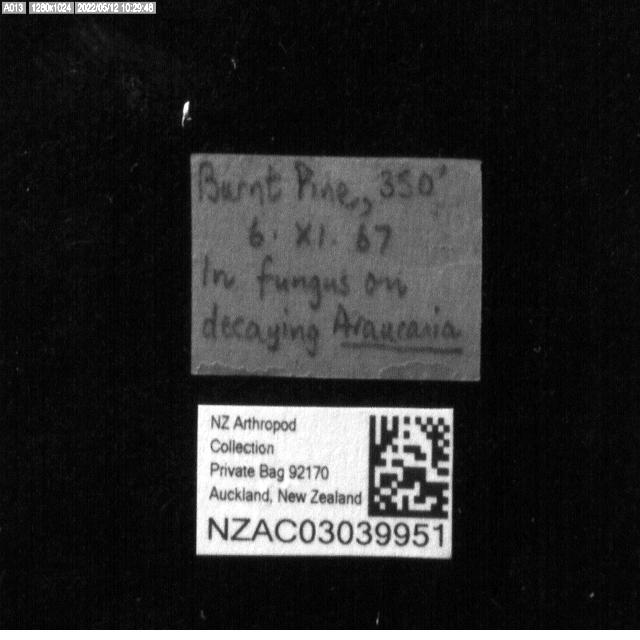 A013 1280x1024 2022/05/12 10:29:48
Burnt Pine, 350'
6. XI. 67
In fungus on
decaying Araucaria
NZ Arthropod
Collection
Private Bag 92170
Auckland, New Zealand
NZAC03039951